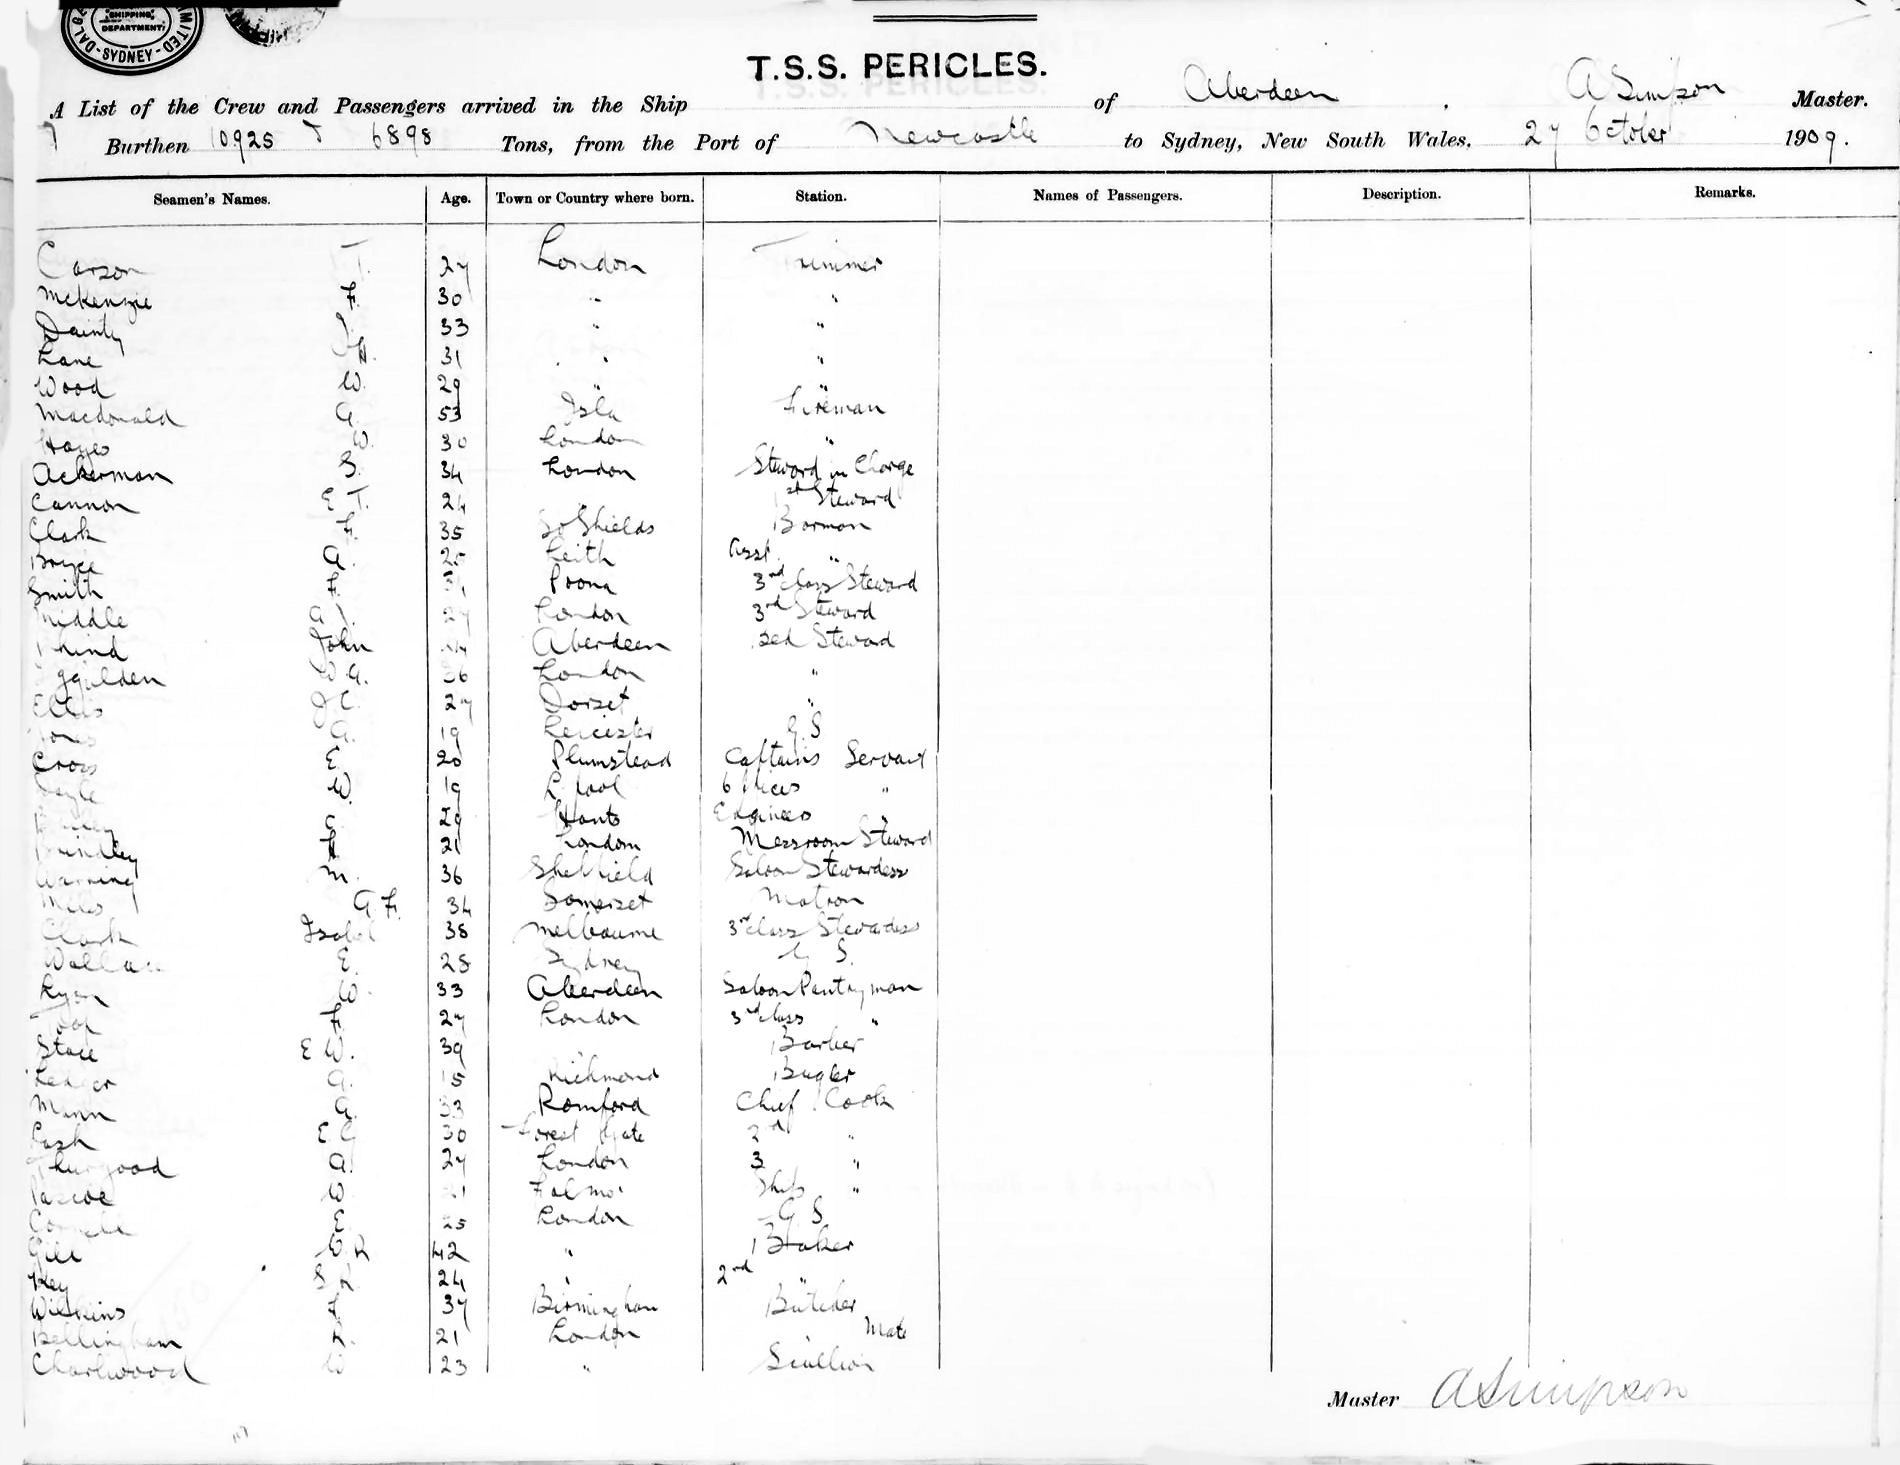 SHIPPING
DEPARTMENT
SYDNEY
T.S.S. PERICLES.
A List of the Crew and Passengers arrived in the Ship of Aberdeen . A Simpson Master.
Burthen 10925 T 6898 Tons, from the Port of Newcastle to Sydney, New South Wales, 27 October 1909.
Seamen's Names. Age. Town or Country where born. Station. Names of Passengers. Description. Remarks.
Carson T. 27 London Trimmer
McKenzie F. 30 " "
Dainty 33 " "
Lane 31 " "
Wood W. 29 " "
Macdonald A. 53 Isla Fireman
Hayes W. 30 London "
Ackerman S. 34 London Steward in Charge
Cannon E T. 24 " 1st Steward
Clark F. 35 So Shields Barman
Bryce A. Leith Asst "
Smith F. Poona 3rd Class Steward
Middle A 27 London 3rd Steward
John Aberdeen Bed Steward
W A. 36 London "
Ellis J C. 27 Dorset "
Jones A. 19 Leicester G. S
Cross E. 20 Plumstead Captains Servant
W. 19 L'pool "
29 Hants Engineers "
Brindley 21 London Messroom Steward
M. 36 Sheffield Saloon Stewardess
Miles A F. 34 Somerset Matron
Clark Isabel 38 Melbourne 3rd Class Stewardess
Wallace E. 28 Sydney G. S.
Ryan W. 33 Aberdeen Saloon Pantryman
F. 27 London 3rd Class "
Stace E W. 39 " Barber
Ledger A. 15 Richmond Bugler
Mann A. 33 Romford Chief Cook
Cash E G 30 Forest Gate 2nd "
Thurgood A. 27 London 3 "
Pascoe W. Ships "
E. 25 London G S
Gill W R 42 " Baker
Key S 24 " 2nd "
Wilkins 37 Birmingham Butcher
Bellingham R. 21 London " Mate
Charlwood W 23 " Scullion
Master A Simpson